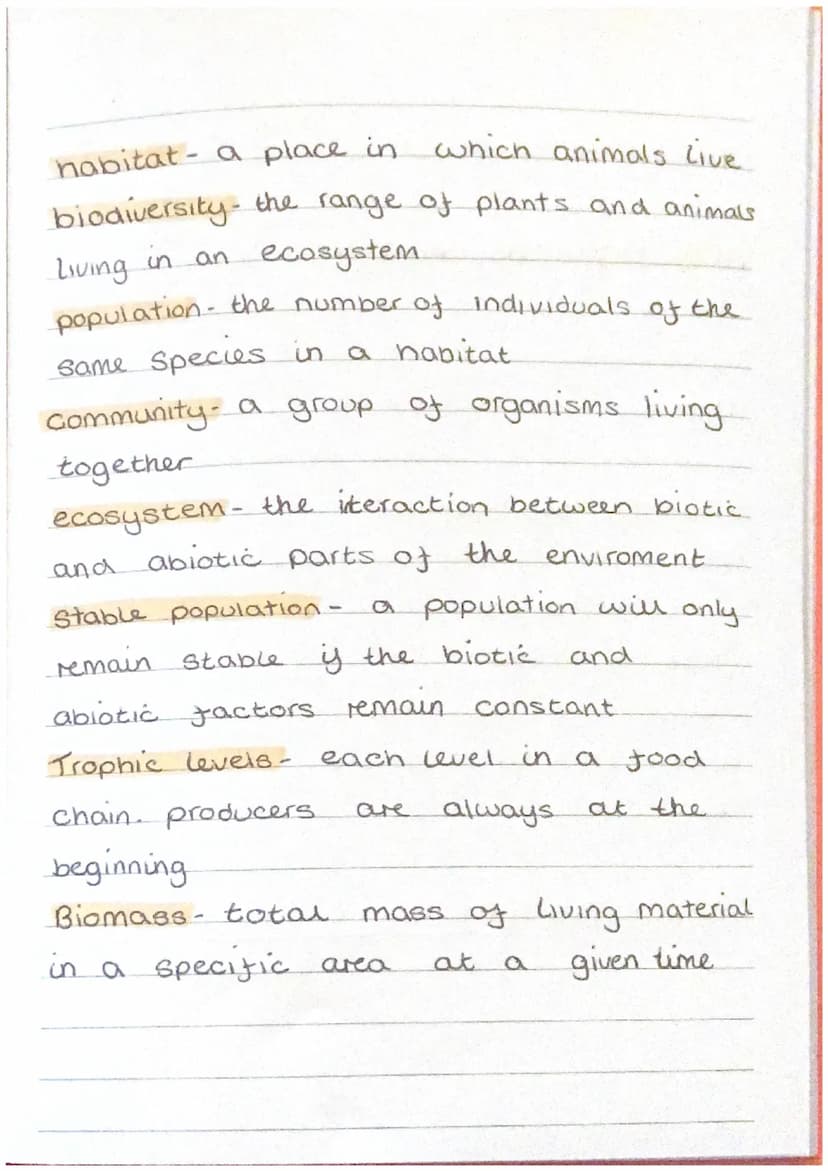 habitat - a place in which animals live
biodiversity - the range of plants and animals
living in an ecosystem
population - the number of individuals of the
same species in a habitat
community - a group of organisms living
together
ecosystem - the iteraction between biotic
and abiotic parts of the enviroment
Stable population - a population will only
remain stable if the biotic and
abiotic factors remain constant
Trophic levels - each level in a food
chain. producers are always at the
beginning
Biomass - total mass of living material
in a specific area at a given time